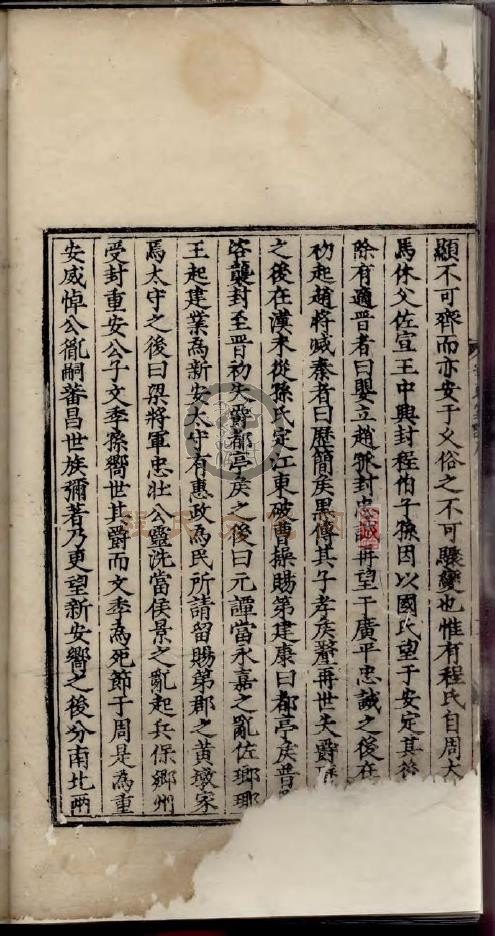 顯不可齊而亦安于义俗之不可驟變也惟有程氏自周大
馬休父佐宣王中興封程伯子孫因以國氏望于安定其後
除有適晋者曰嬰立趙孤封忠誠再望于廣平忠誠之後在
初起趙將滅秦者曰歷簡矦黑傳其子孝矦嫠再世失爵
之後在漢末從孫氏定江東破曹操賜第建康曰都亭矦普
咨襲封至晋初失爵都亭矦之後曰元譚當永嘉之亂佐瑯琊
王起建業為新安太守有惠政為民所請留賜第郡之黃墩家
焉太守之後曰梁將軍忠壯公靈洗當侯景之亂起兵保鄉州
受封重安公子文季孫嚮世其爵而文季為死節于周是為重
安威悼公胤嗣蕃昌世族彌著乃更望新安嚮之後分南北兩